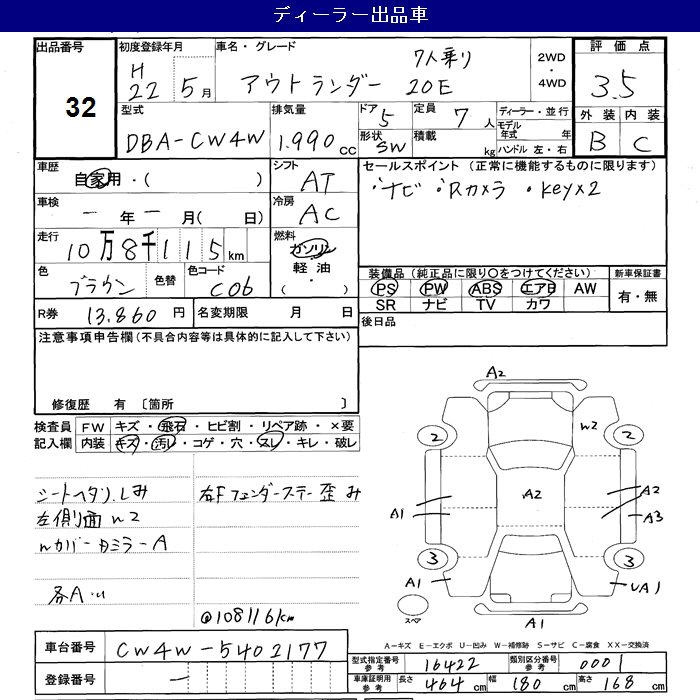 ディーラー出品車
出品番号
32
初度登録年月
H
22 5月
車名・グレード
7人乗り
アウトランダー 20E
2WD
・
4WD
評価点
3.5
外装 内装
B C
型式
DBA-CW4W
排気量
1.990 cc
ドア 5
形状 SW
定員 7 人
積載 kg
ディーラー・並行
モデル年式 年
ハンドル 左・右
車歴
自家用・( )
シフト
AT
セールスポイント (正常に機能するものに限ります)
・ナビ ・Rカメラ ・keyx2
車検
ー 年 ー 月( 日)
冷房
AC
走行
10万8千115km
燃料
ガソリン
・
軽油
( ・ )
色
ブラウン
色替
色コード
C06
装備品 (純正品に限り○をつけてください)
PS PW ABS エアB AW
SR ナビ TV カワ
新車保証書
有・無
R券 13.860 円
名変期限 月 日
後日品
注意事項申告欄(不具合内容等は具体的に記入して下さい)
修復歴 有 〔箇所 〕
検査員
記入欄
FW キズ・飛石・ヒビ割・リペア跡・×要
内装 キズ・汚レ・コゲ・穴・スレ・キレ・破レ
シートヘタリ.しみ
左側面 W2
Wカバー Dミラー A
各A.U
右Fフェンダーステー歪み
@108116km
A2
W2
2 2
A2
A1
A2
A3
3 3
A1
UA1
スペア
A1
A-キズ E-エクボ U-凹み W-補修跡 S-サビ C-腐食 XX-交換済
車台番号 CW4W-5402177
登録番号 ー
型式指定番号
参考
16422
類別区分番号
参考
0001
車庫証明用
参考
長さ 464 cm 幅 180 cm 高さ 168 cm